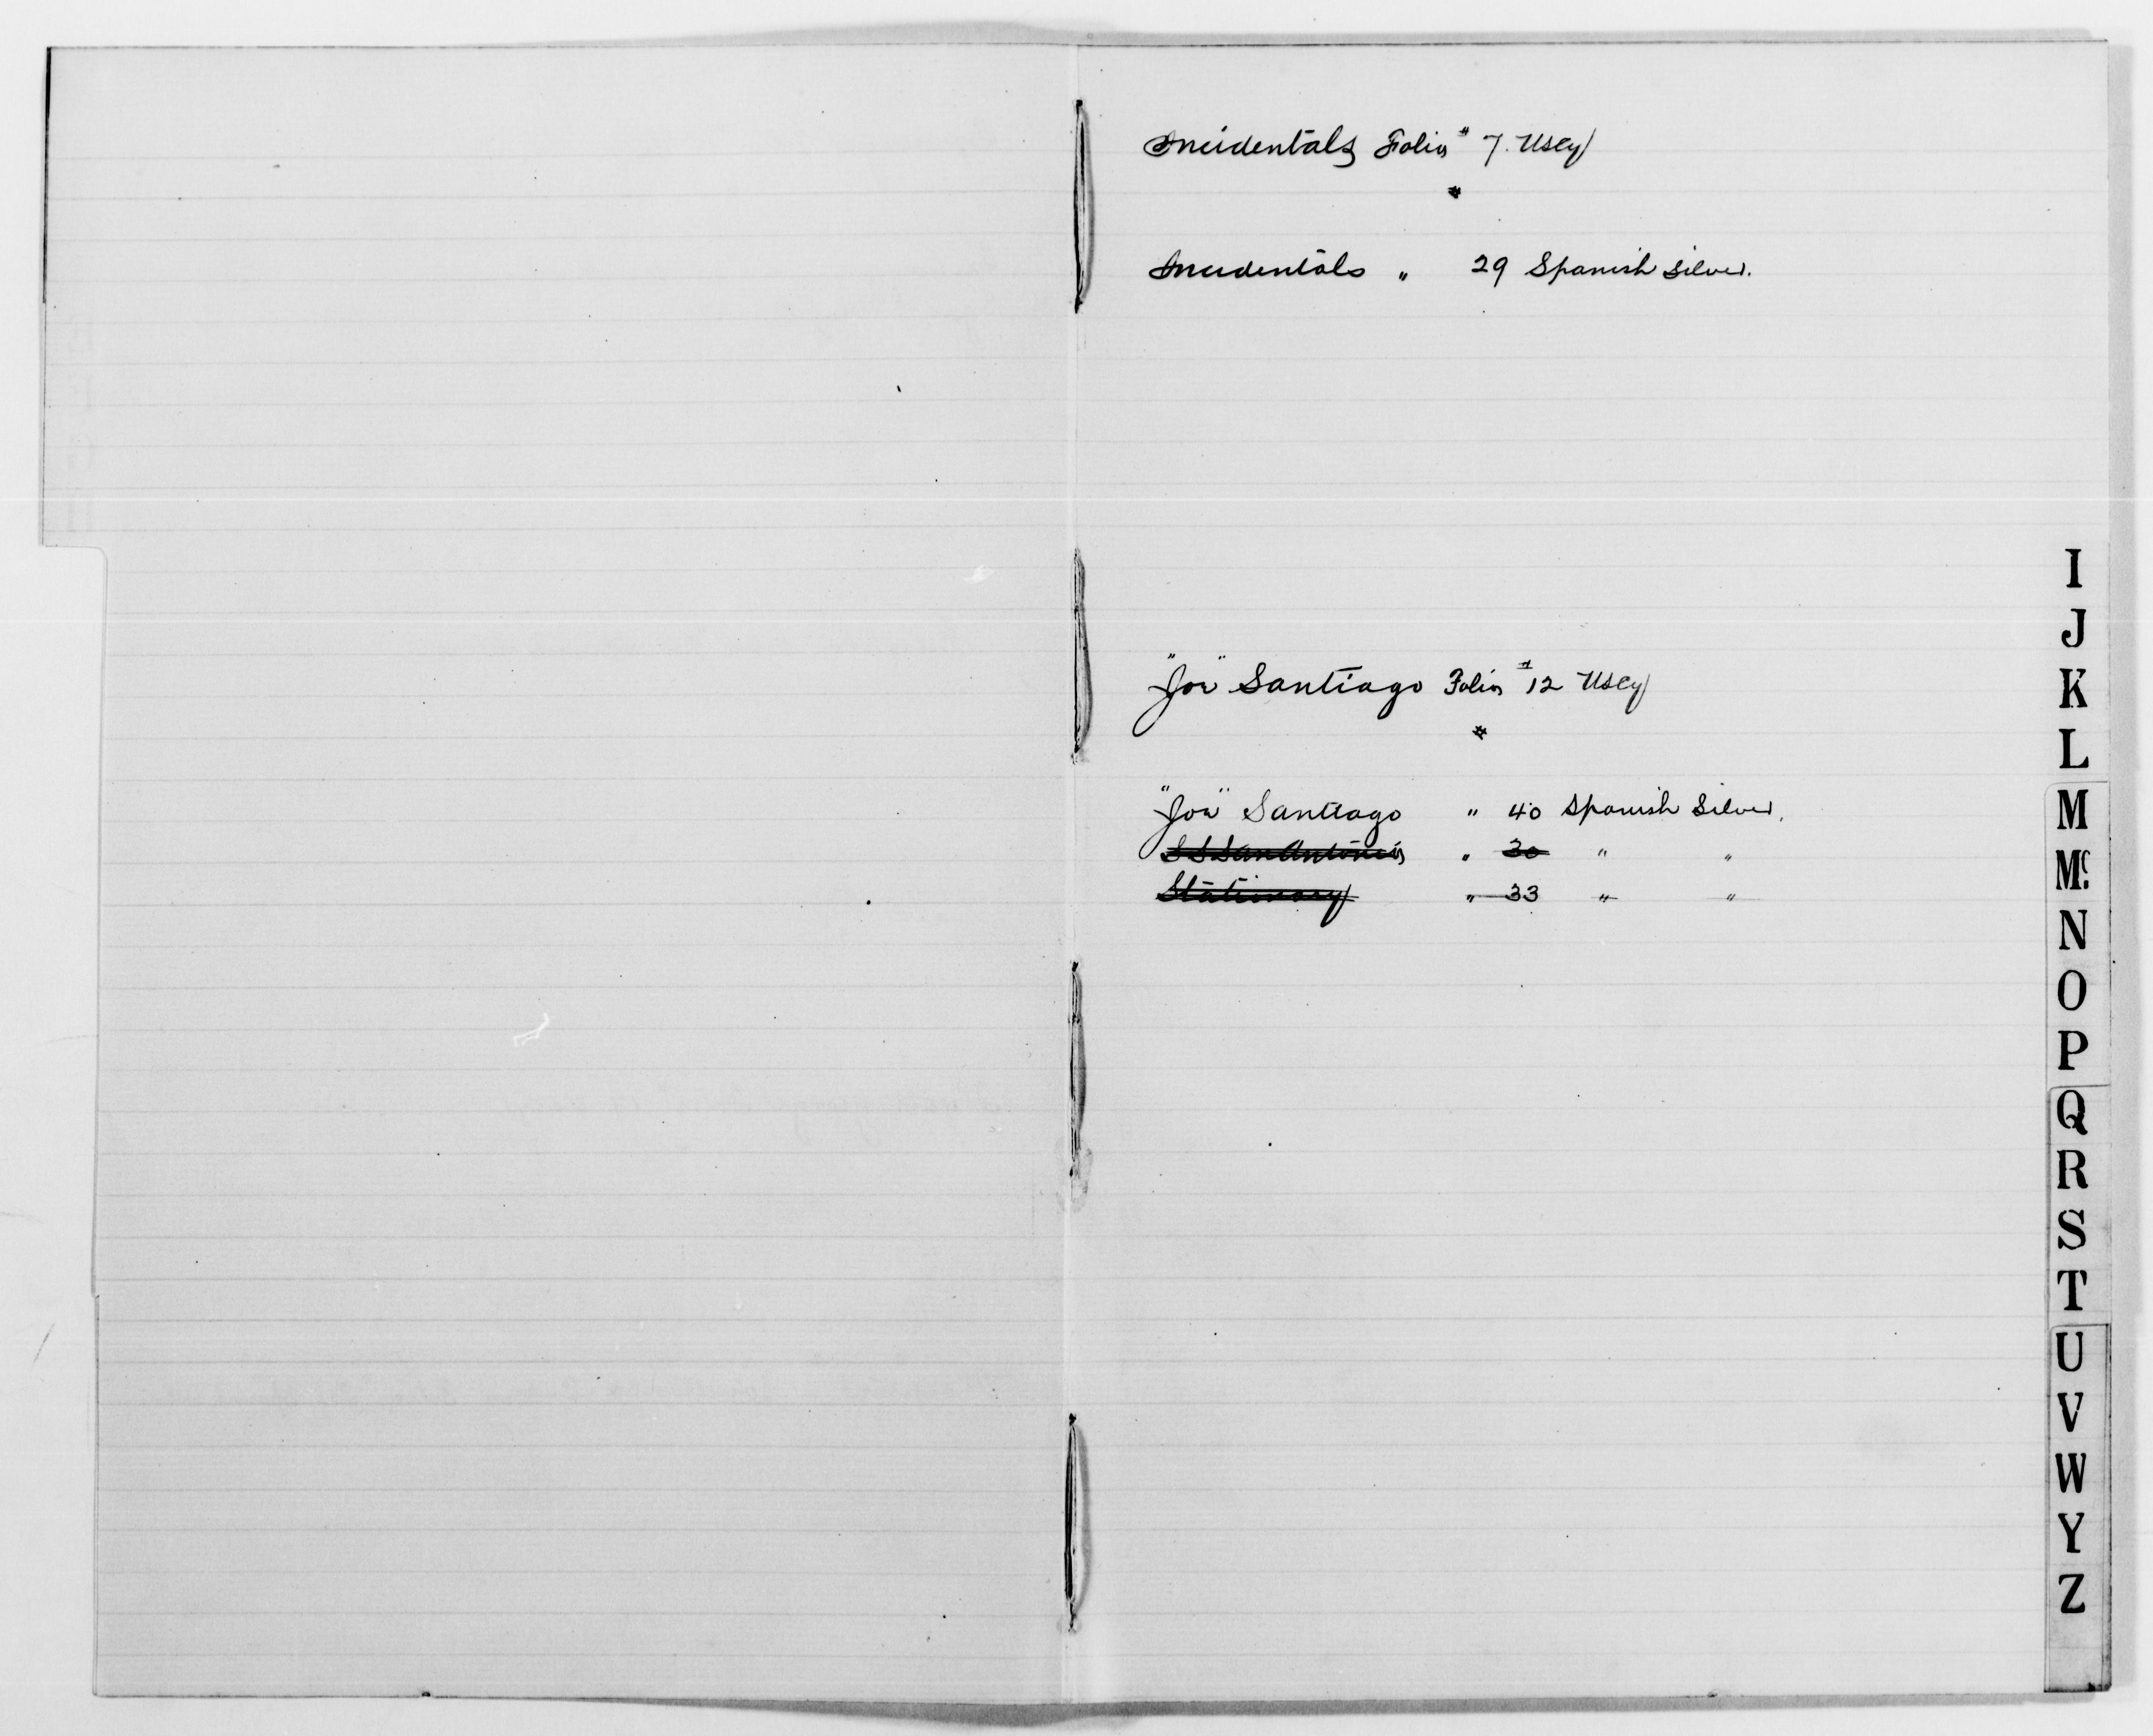 Incidentals Folio # 7. Uscy
#
Incidentals " 29 Spanish Silver.
"Joe" Santiago Folio # 12 Uscy
#
"Joe" Santiago " 40 Spanish Silver.
S S San Antonio " 30 " "
Stationary " 33 " "
I
J
K
L
M
Mc.
N
O
P
Q
R
S
T
U
V
W
Y
Z